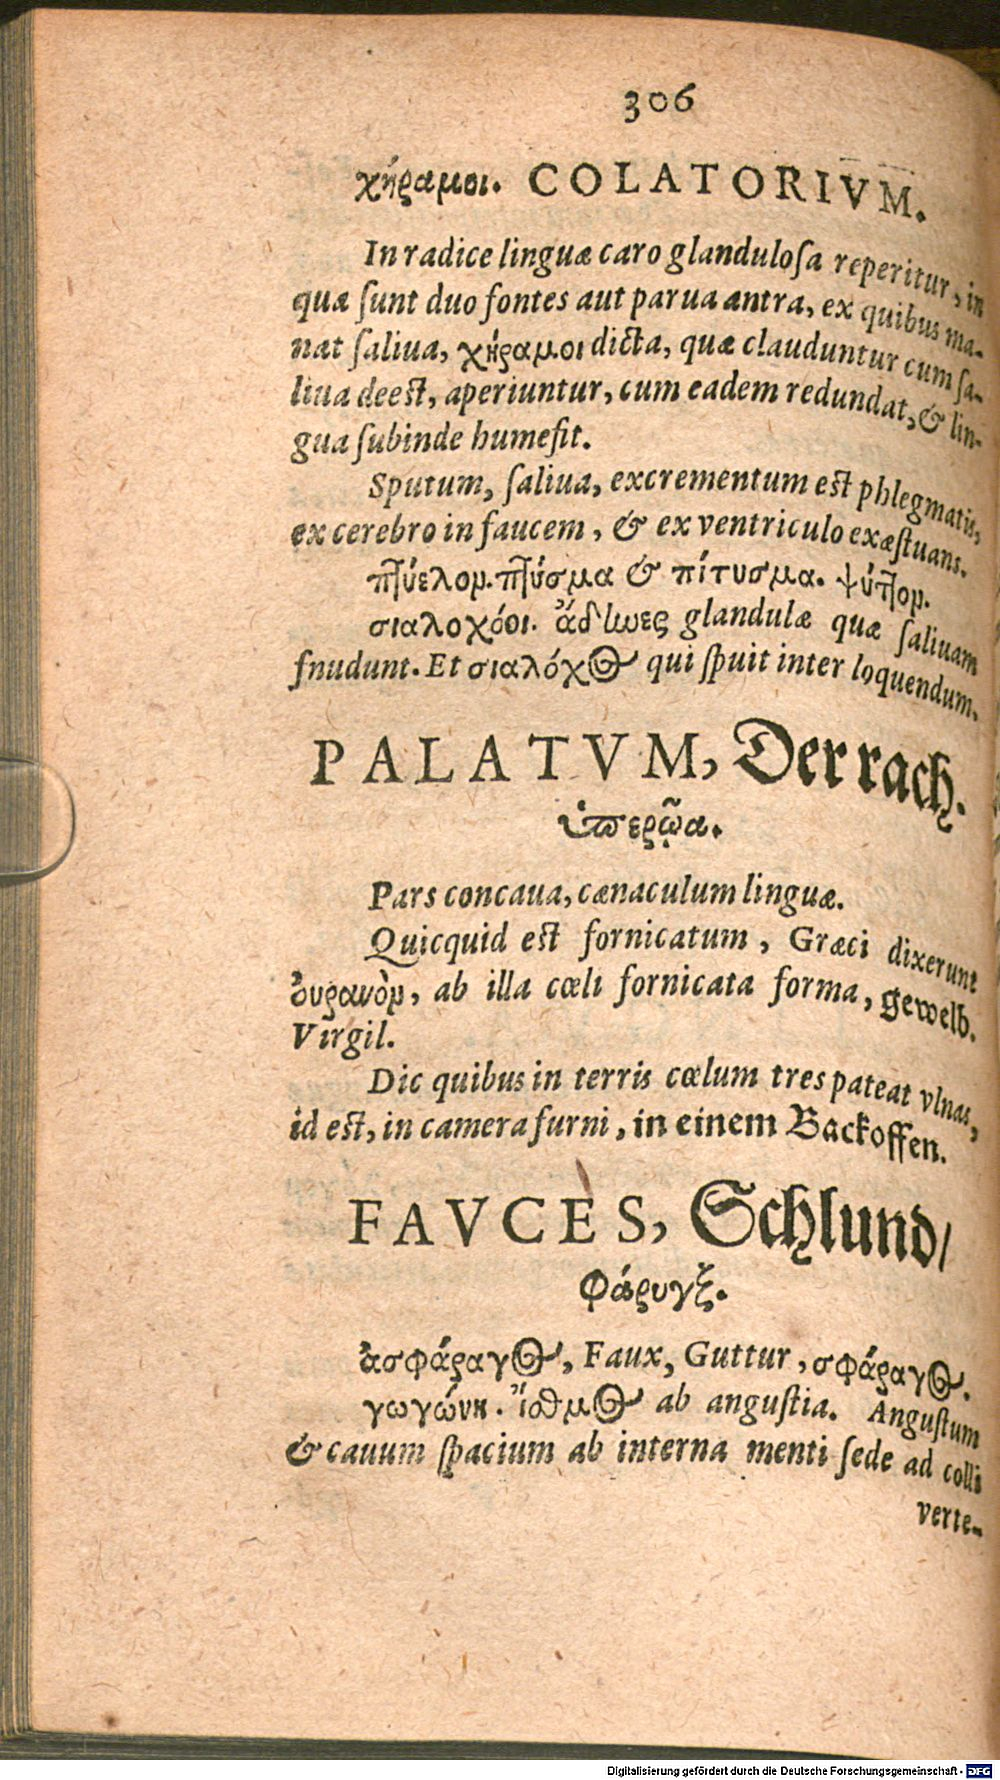 306
χήραμοι. COLATORIVM.
In radice linguæ caro glanduloſa reperitur, in
quæ ſunt duo fontes aut parua antra, ex quibus ma-
nat ſaliua, χήραμοι dicta, quæ clauduntur cum ſa-
liua deeſt, aperiuntur, cum eadem redundat, & lin-
gua ſubinde humefit.
Sputum, ſaliua, excrementum eſt phlegmatis,
ex cerebro in faucem, & ex ventriculo exæſtuans.
πτύελομ. πτύσμα & πίτυσμα. ψύττομ.
σιαλοχόοι. ἄδινες glandulæ quæ ſaliuam
fnudunt. Et σιαλόχος qui ſpuit inter loquendum.
PALATVM, Der rach.
ὑπερῷα.
Pars concaua, cænaculum linguæ.
Quicquid eſt fornicatum, Græci dixerunt
ὀυρανὸμ, ab illa cœli fornicata forma, gewelb.
Virgil.
Dic quibus in terris cœlum tres pateat vlnas,
id eſt, in camera furni, in einem Backoffen.
FAVCES, Schlund/
Φάρυγξ.
ἀσφάραγος, Faux, Guttur, σφάραγος.
γωγώνη. ἴσθμος ab anguſtia. Anguſtum
& cauum ſpacium ab interna menti ſede ad colli
verte-
Digitalisierung gefördert durch die Deutsche Forschungsgemeinschaft - DFG